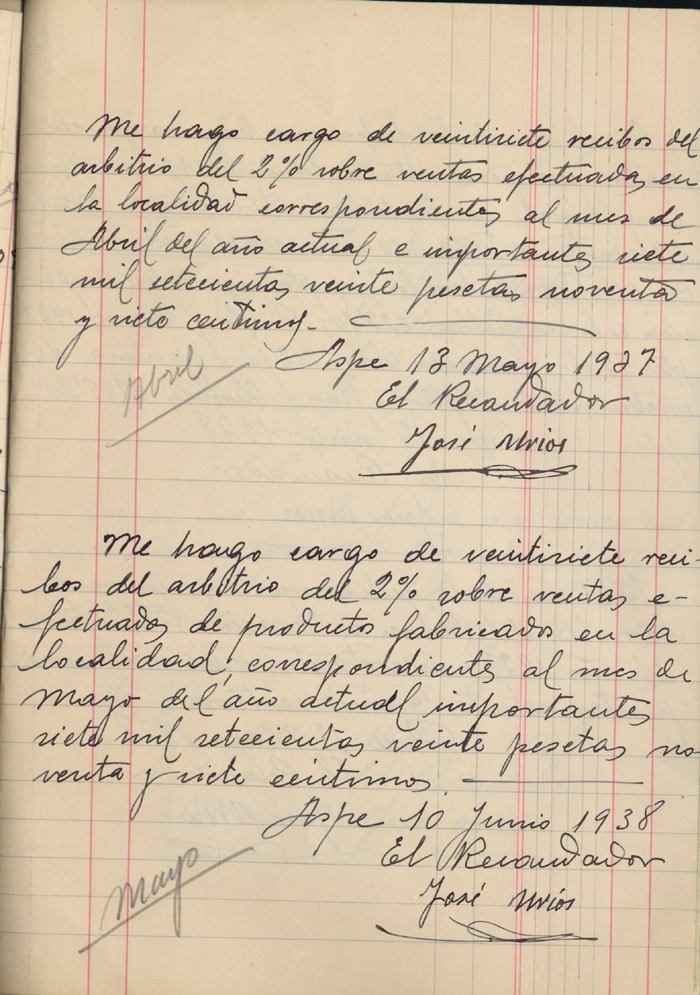 Me hago cargo de veintisiete recibos del
arbitrio del 2% sobre ventas efectuadas en
la localidad correspondientes al mes de
Abril del año actual e importantes siete
mil setecientas veinte pesetas noventa
y siete centimos.
Aspe 13 Mayo 1937
Abril
El Recaudador
José Urios
Me hago cargo de veintisiete reci-
bos del arbitrio del 2% sobre ventas e-
fectuadas de productos fabricados en la
localidad, correspondientes al mes de
Mayo del año actual importantes
siete mil setecientas veinte pesetas no-
venta y siete centimos.
Aspe 10 Junio 1938
El Recaudador
Mayo
José Urios